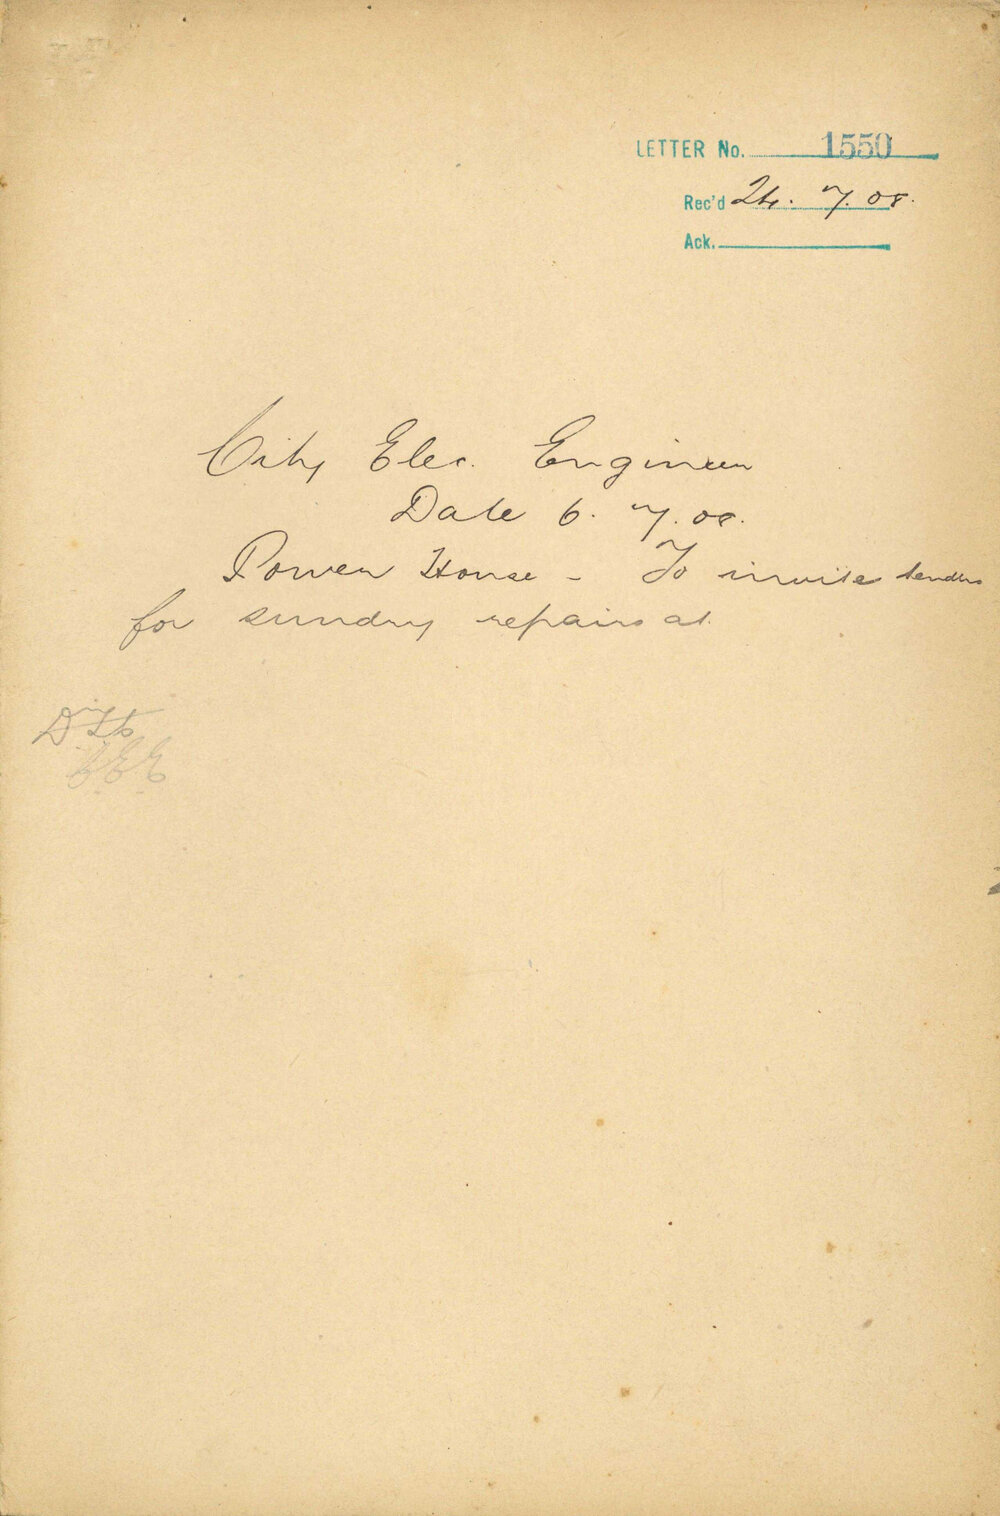 LETTER No. 1550
Rec'd 24. 7. 08.
Ack.
City Elec. Engineer
Date 6. 7. 08.
Power House - To invite tenders
for sundry repairs at